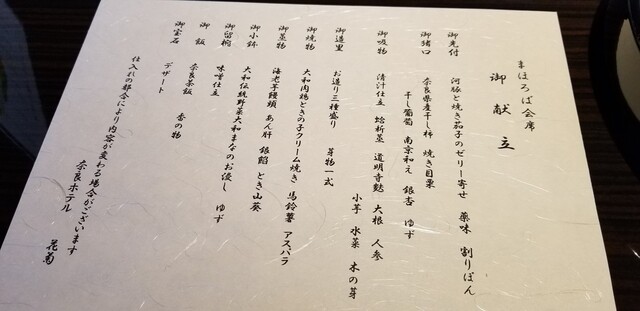 まほろば会席
御献立
御先付 河豚と焼き茄子のゼリー寄せ 薬味 割りぽん
御猪口 奈良県産干し柿 焼き目栗
干し葡萄 南京和え 銀杏 ゆず
御吸物 清汁仕立 蛤新茎 道明寺麩 大根 人参
小芋 水菜 木の芽
御造里 お造り三種盛り 芽物一式
御焼物 大和肉鶏ときの子クリーム焼き 馬鈴薯 アスパラ
御蒸物 海老芋饅頭 あん肝 銀餡 とき山葵
御小鉢 大和伝統野菜大和まなのお浸し ゆず
御留椀 味噌仕立
御飯 奈良茶飯 香の物
御宝石 デザート
仕入れの都合により内容が変わる場合がございます
奈良ホテル 花菊